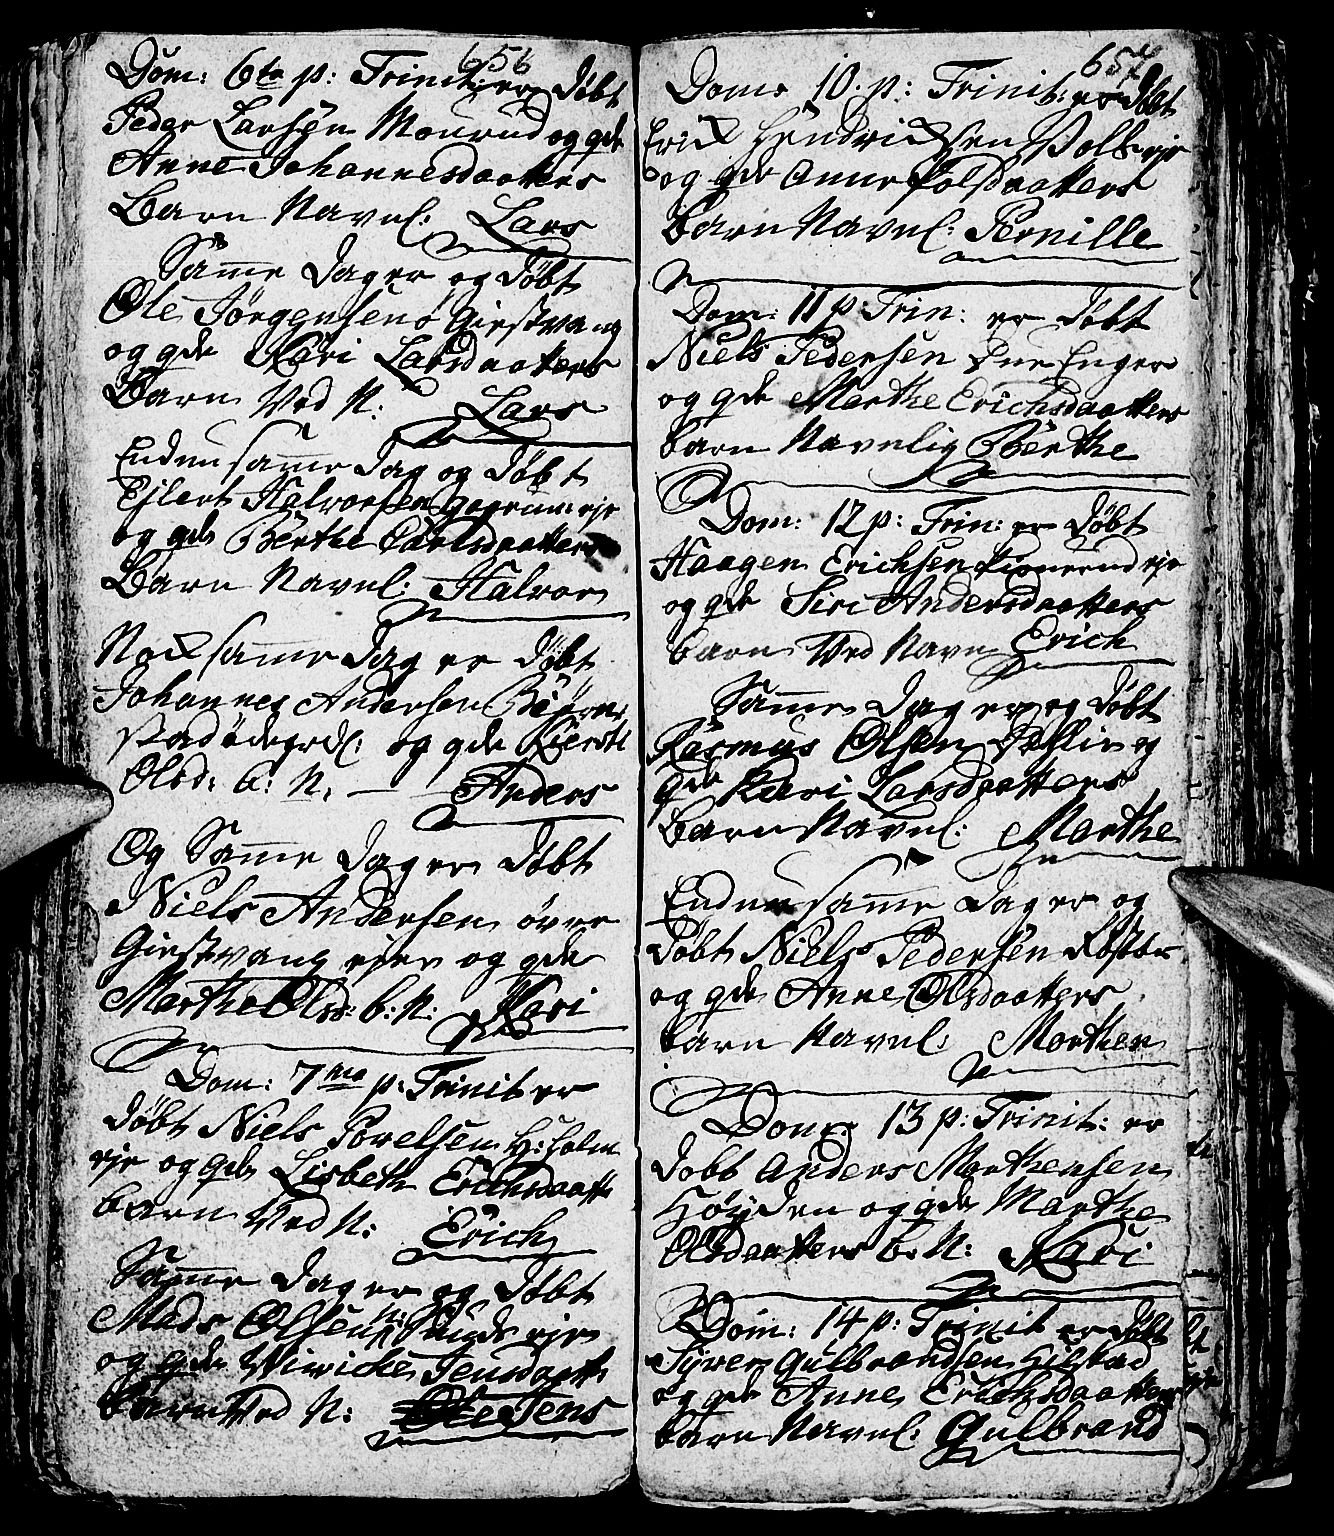 656
Dom: 6ta p: Trinit: er døbt
Peder Larsen Mourud og gde
Anne Johannesdaatters
Barn Navnl: Lars
Samme Dag er og døbt
Ole Jörgensens Giestvang
og gde Kari Larsdaatters
Barn Ved N: Lars
Endnu samme dag og døbt
Ejlert Halvorsen eje
og gde Berthe Carlsdaatters
Barn Navnl: Halvor
Nock samme dag er døbt
Johannes Andersen Biørn
stadødegrdl: og gde Kiersti
Olsd: b: N: Anders
Og Samme dag er døbt
Niels Andersen øvre
Giestvang ejer og gde
Marthe Olsd: b: N: Kari
Dom: 7ma p: Trinit er
døbt Niels Povelsen H: Holm
eje og gde Lisbeth Erichsdaatt
barn Ved N: Erich
Samme dag er og døbt
Mads Olsen n: Sunde eje
og gde Wiwicke Jensdaatt
Barn Ved N: Jens
657
Dom: 10. p: Trinit: er døbt
Erick Hendricksen eje
og gde Anne Polsdaatters
Barn Navnl: Pernille
Dom: 11 p: Trin: er døbt
Niels Pedersen Enger
og gde Marthe Erichsdaatters
barn Navnlig Berthe
Dom: 12 p: Trin: er døbt
Haagen Erichsen eje
og gde Siri Andersdaatters
barn Ved Navn Erich
Samme dag er og døbt
Rasmus Olsen og
gde Kari Larsdaatters
barn Navnl: Marthe
Endnu samme dag er og
døbt Niels Pedersen
og gde Anne Olsdaatters
barn Navnl: Morthen
Dom: 13 p: Trinit: er
døbt Anders Morthensen
Høyden og gde Marthe
Olsdaatters b: N: Kari
Dom: 14 p: Trinit er døbt
Syver Gulbrandsen Hilstad
og gde Anne Erichsdaatters
barn Navnl: Gulbrand